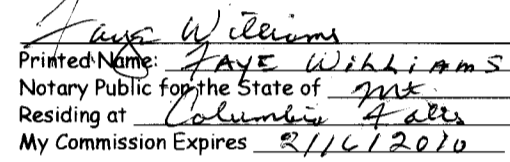 Faye Williams
Printed Name: FAYE WiLLiAmS
Notary Public for the State of Mt.
Residing at Columbia Falls
My Commission Expires 2/16/2010